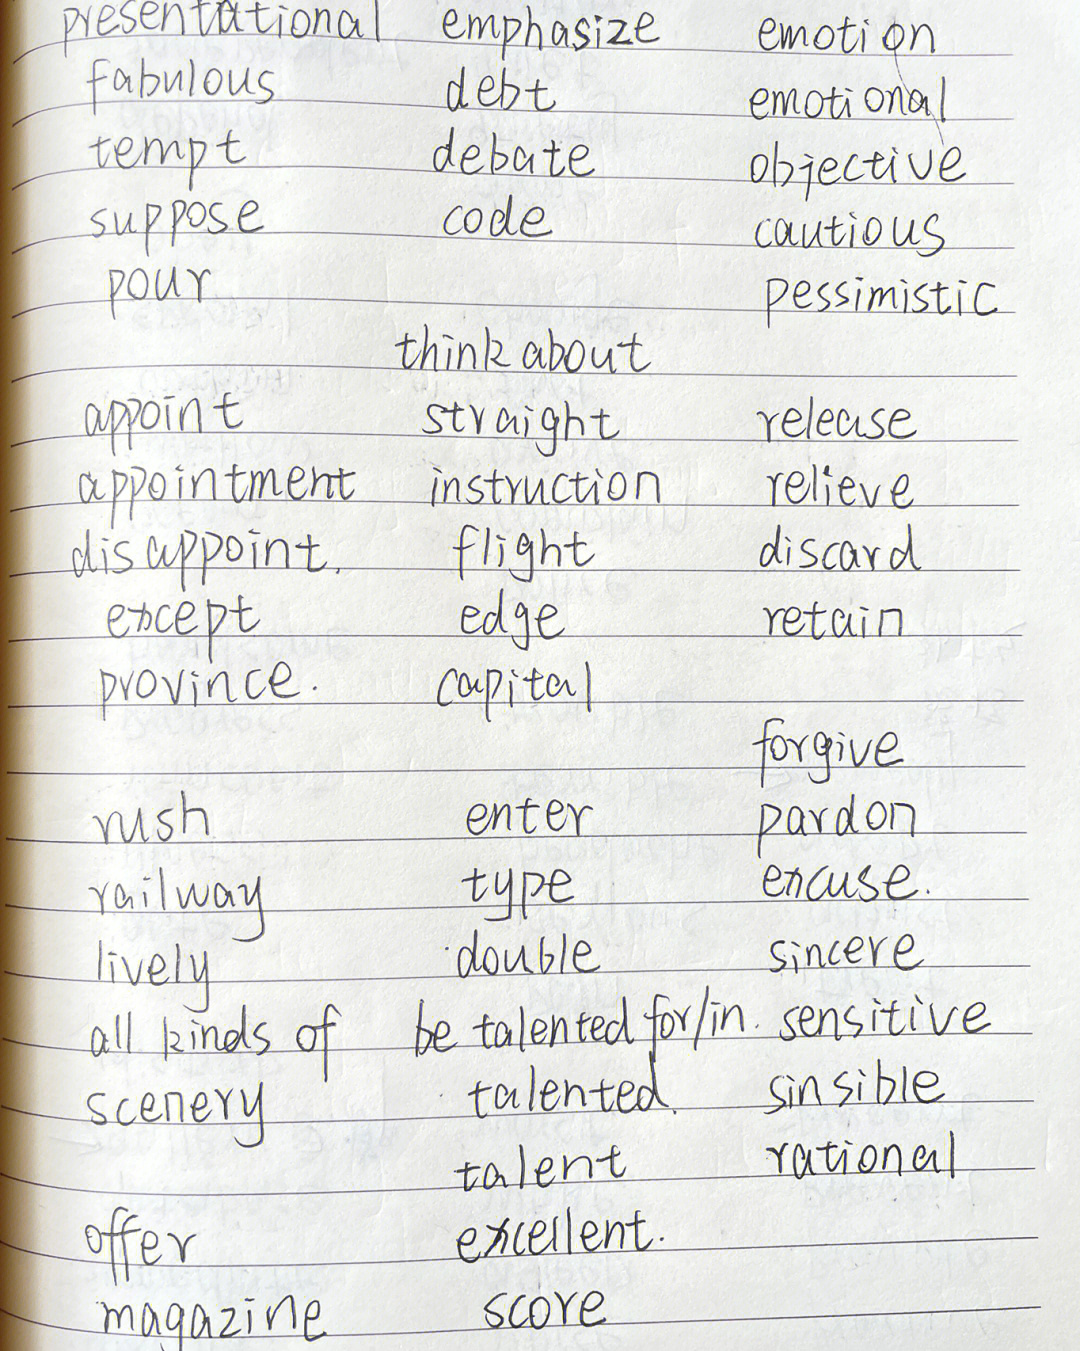 presentational emphasize emotion
fabulous debt emotional
tempt debate objective
suppose code cautious
pour pessimistic
think about
appoint straight release
appointment instruction relieve
disappoint. flight discard
except edge retain
province. capital
forgive
rush enter pardon
railway type excuse.
lively double sincere
all kinds of be talented for/in. sensitive
scenery talented. sinsible
talent rational
offer excellent.
magazine score